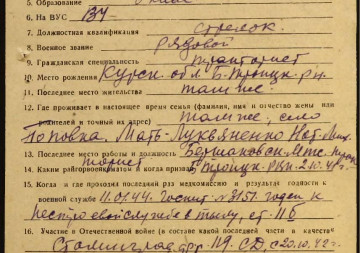 5. Образование
6. На ВУС 134
7. Должностная квалификация стрелок
8. Военное звание рядовой
9. Гражданская специальность тракторист
10. Место рождения Курск. обл. Б. Троицк. р-н
11. Последнее место жительства там же
12. Где проживает в настоящее время семья (фамилия, имя и отчество жены или
родителей и точный их адрес) там же, село
Поповка. Мать-Лукьяненко Нат.
13. Последнее место работы и должность МТС
14. Каким райгорвоенкоматом и когда призван Б Троицк. РВК 2.10.41г.
15. Когда и где проходил последний раз медкомиссию и результат годности к
военной службе 11.07.44. Госпит. №3151 годен к
нестроевой службе в тылу, ст. II б
16. Участие в Отечественной войне (в составе какой последней части в качестве
Сталинград. фр. 119 СД, с 20.10.42г.